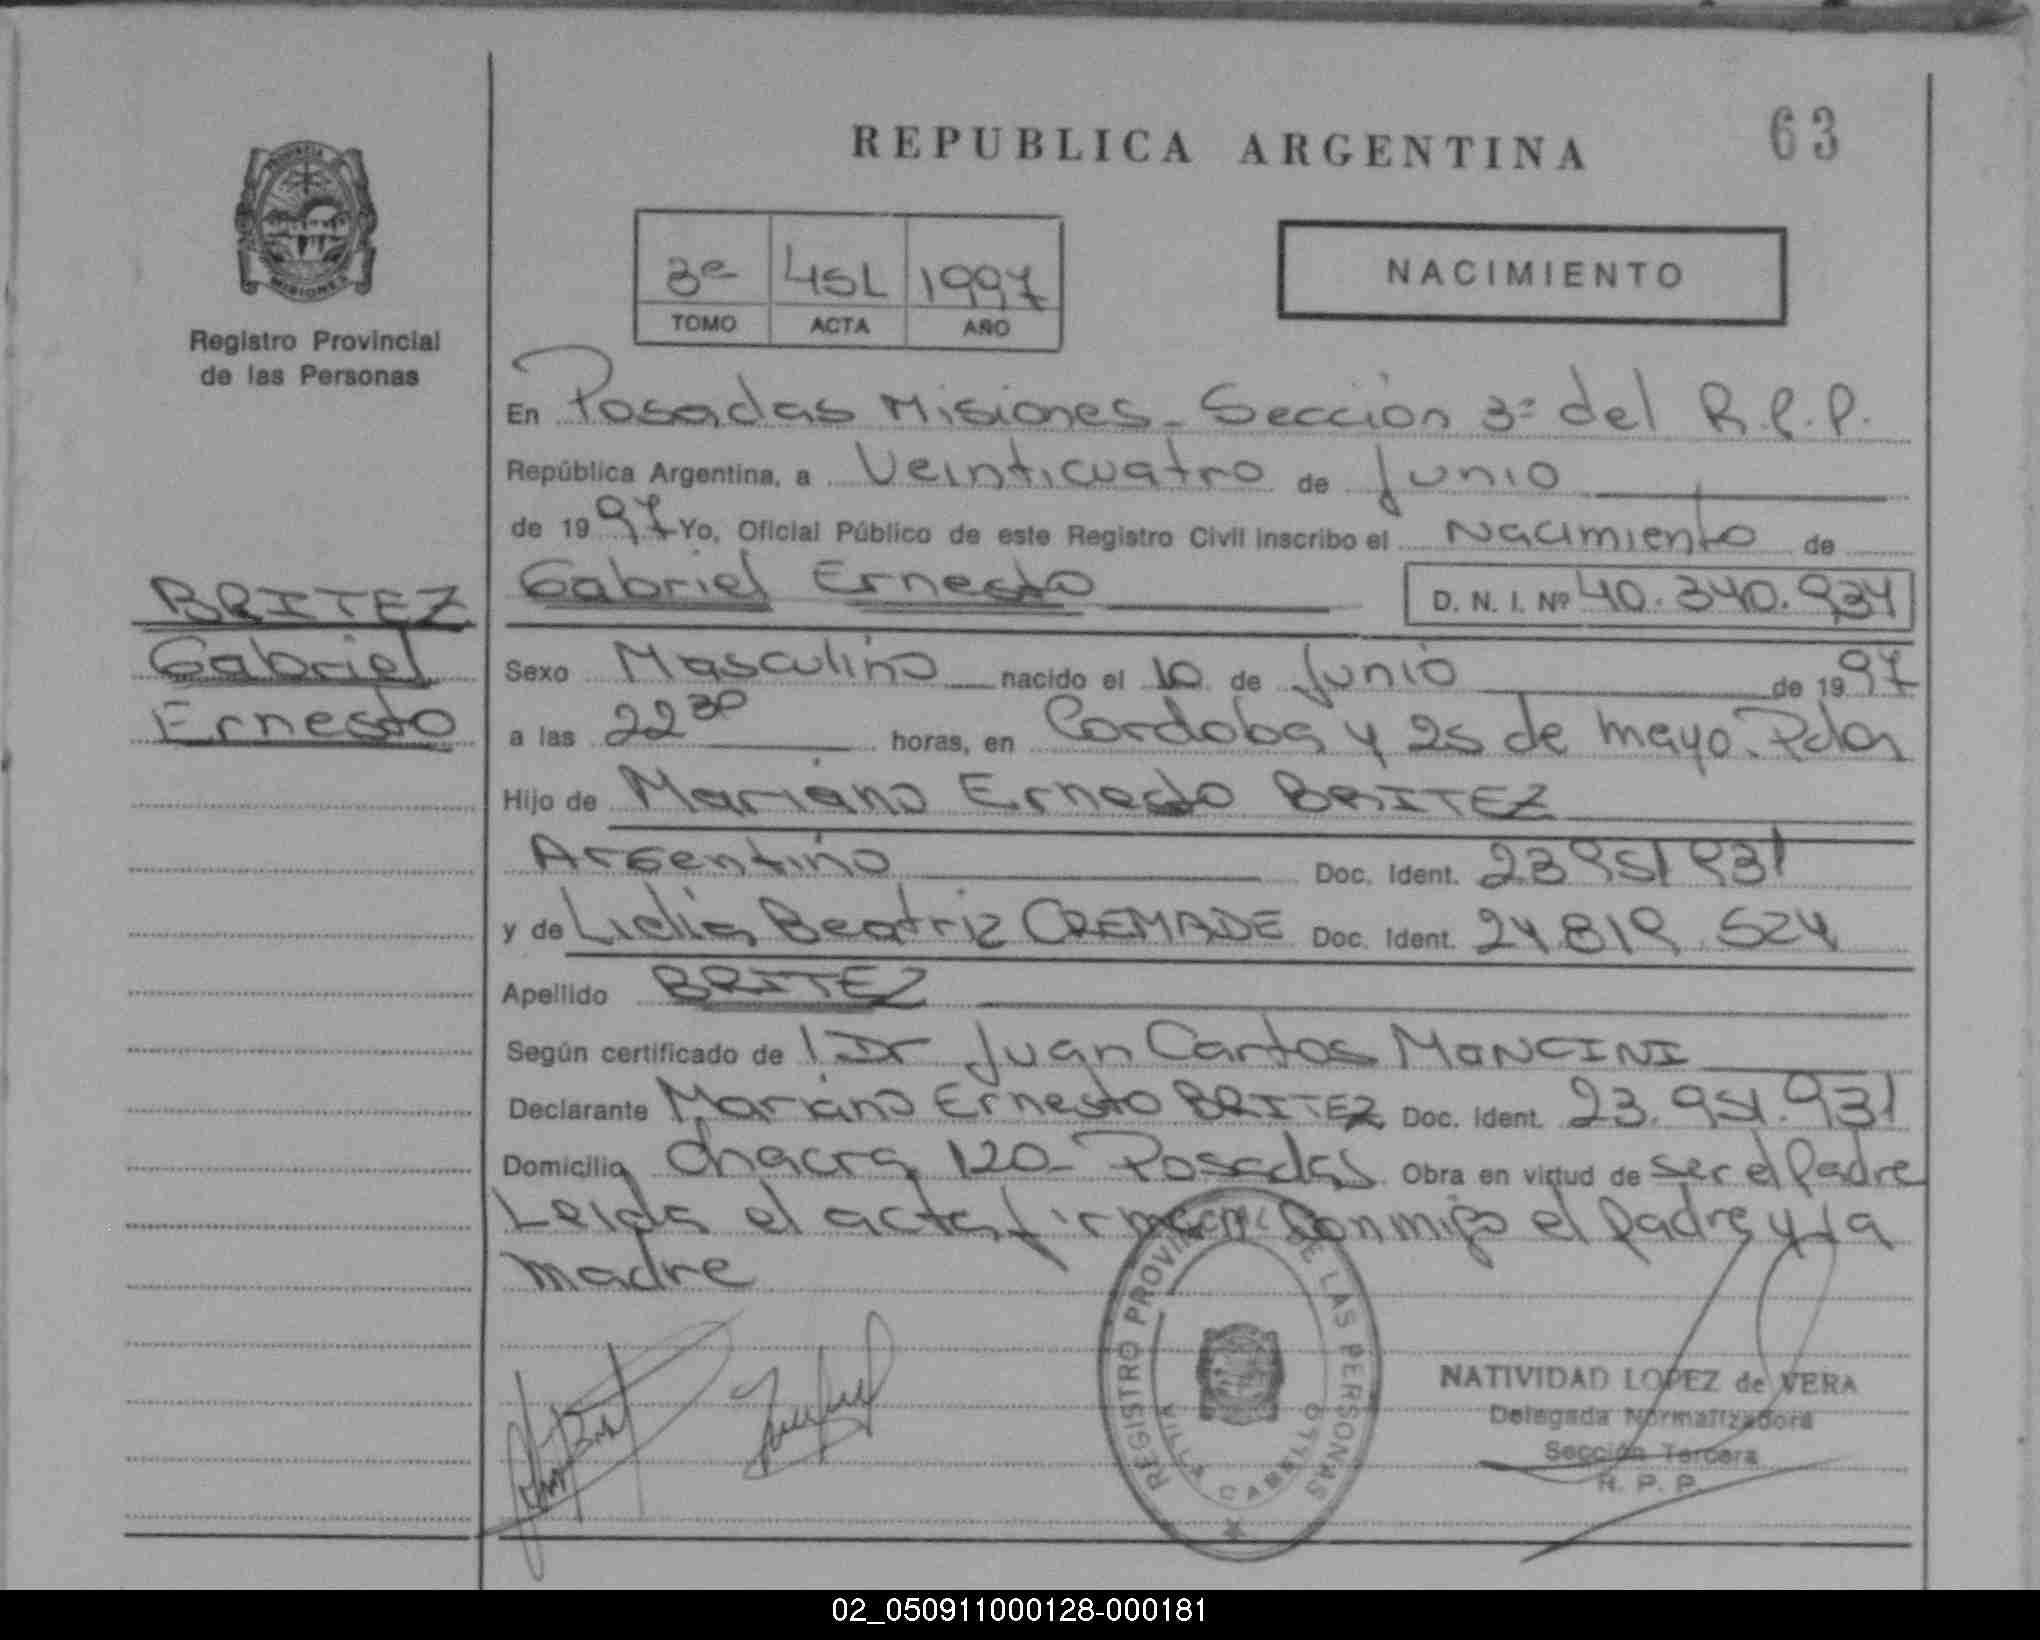 REPUBLICA ARGENTINA
63
PROVINCIA
MISIONES
Registro Provincial
de las Personas
3ª 451 1997
TOMO ACTA AÑO
NACIMIENTO
En Posadas Misiones - Sección 3ª del R.P.P.
República Argentina, a Veinticuatro de Junio
de 1997 Yo, Oficial Público de este Registro Civil inscribo el Nacimiento de
Gabriel Ernesto D. N. I. Nº 40.340.934
BRITEZ
Gabriel
Ernesto
Sexo Masculino nacido el 10 de Junio de 1997
a las 22 30 horas, en Cordoba y 25 de mayo. Pdas
Hijo de Mariano Ernesto BRITEZ
Argentino Doc. Ident. 23 951 931
y de Lidia Beatriz CREMADE Doc. Ident. 24.819.524
Apellido BRITEZ
Según certificado de Dr Juan Carlos MANCINI
Declarante Mariano Ernesto BRITEZ Doc. Ident. 23.951.931
Domicilio Chacra 120 - Posadas Obra en virtud de ser el Padre
Leida el acta, firman conmigo el padre y la
madre
REGISTRO PROVINCIAL DE LAS PERSONAS
VILLA CABELLO
NATIVIDAD LOPEZ de VERA
Delegada Normalizadora
Sección Tercera
R. P. P.
02_050911000128-000181